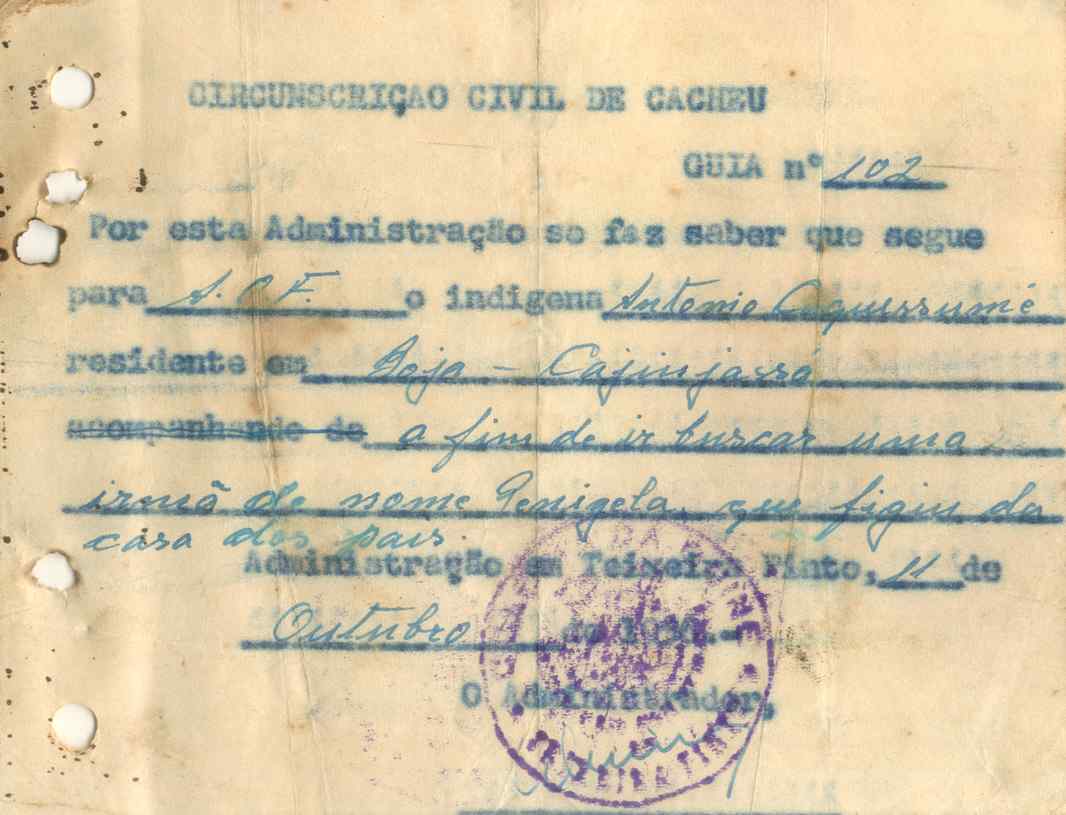 CIRCUNSCRIÇAO CIVIL DE CACHEU
GUIA nº 102
Por esta Administração se faz saber que segue
para A.C F. o indigena Antonio Caquessumé
residente em Joja - Cajinjassá
acompanhando de a fim de ir buscar uma
irmã de nome que figiu da
casa dos pais.
Administração em Teixeira Pinto, 11 de
Outubro de
O Administrador,